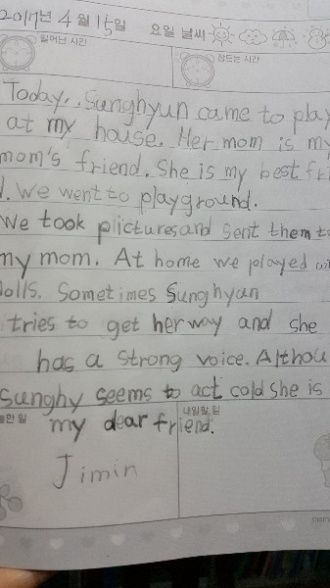 2017년 4월 15일 요일 날씨
일어난 시간
잠드는 시간
Today, Sunghyun came to play
at my house. Her mom is my
mom's friend. She is my best fri
d. We went to playground.
We took plictures and sent them to
my mom. At home we played wi
dolls. Sometimes Sunghyun
tries to get her way and she
has a strong voice. Althou
sunghy seems to act cold she is
my dear friend.
Jimin
한 일
내일 할 일